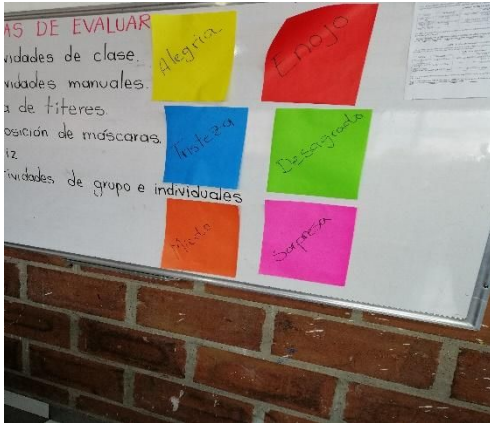 AS DE EVALUAR
vidades de clase.
vidades manuales.
a de títeres.
osición de máscaras.
iz
ividades de grupo e individuales
Alegría
Enojo
Tristeza
Desagrado
Miedo
Sorpresa